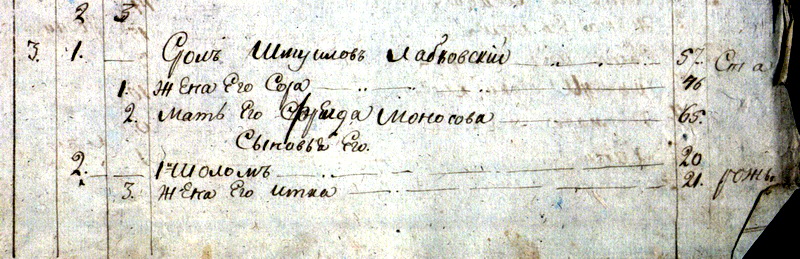 2 3
3. 1. Сромъ Шмуиловъ Лабковскій 57.
1. Жена Его Сора 46
2. Мать Его Фрейда Моносова 65.
Сыновья Его.
2. 1й Шоломъ 20
3. Жена Его Итка 21.